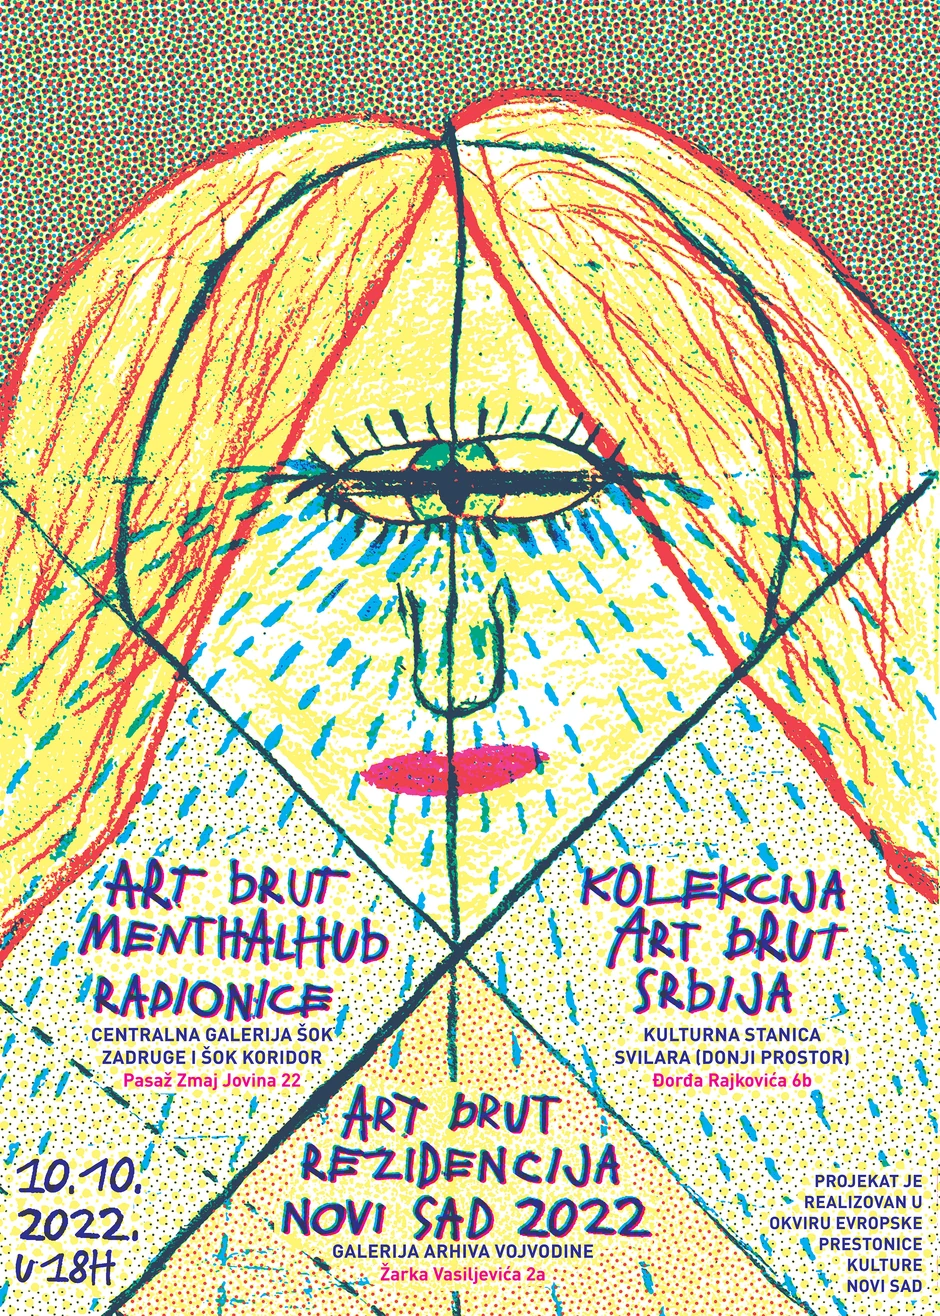 ART bRUT
MENTHALHUb
RADIONICE
CENTRALNA GALERIJA ŠOK
ZADRUGE I ŠOK KORIDOR
Pasaž Zmaj Jovina 22
KOLEKCIJA
ART bRUT
SRbIJA
KULTURNA STANICA
SVILARA (DONJI PROSTOR)
Đorđa Rajkovića 6b
ART bRUT
REZIDENCIJA
NOVI SAD 2022
GALERIJA ARHIVA VOJVODINE
Žarka Vasiljevića 2a
10.10.
2022.
U 18H
PROJEKAT JE
REALIZOVAN U
OKVIRU EVROPSKE
PRESTONICE
KULTURE
NOVI SAD